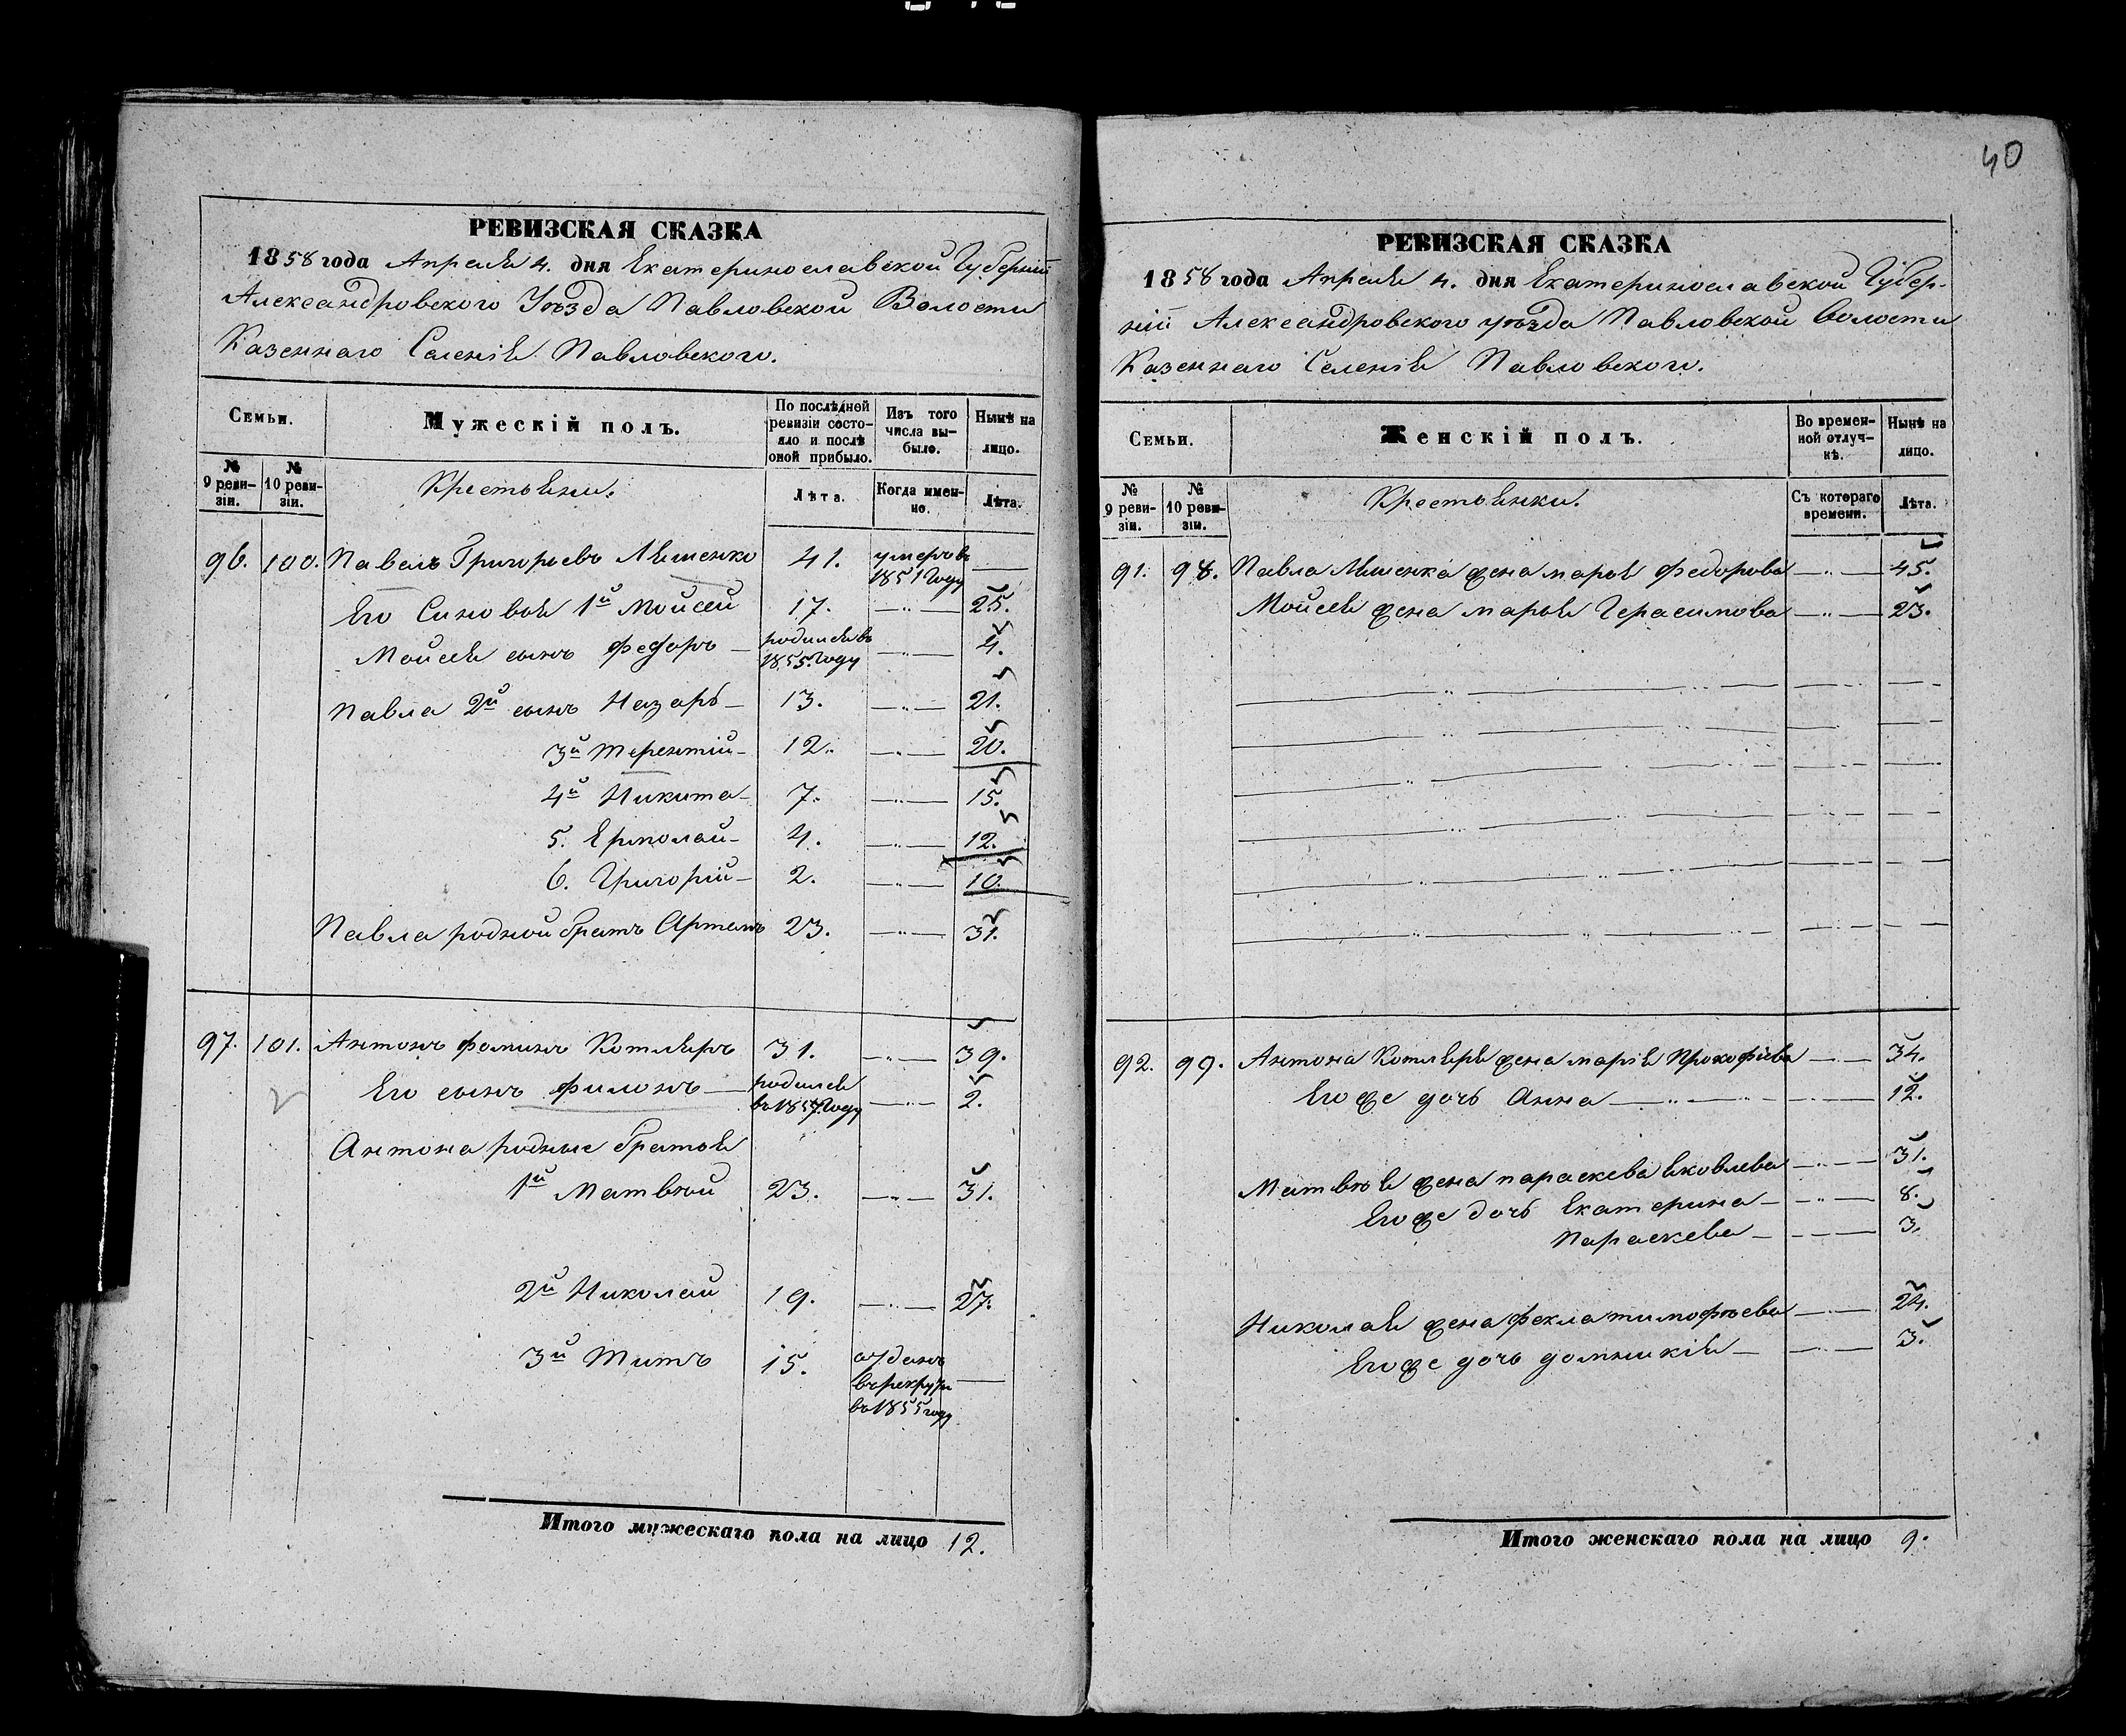 40
РЕВИЗСКАЯ СКАЗКА
1858 года Апреля 4. дня Екатеринославской Губерніи
Александровского Уѣзда Павловской Волости
Казеннаго Селенія Павловского.
Семьи.
Мужескій полъ.
По послѣдней ревизіи состояло и послѣ оной прибыло.
Изъ того числа выбыло.
Нынѣ на лицо.
№ 9 ревизіи.
№ 10 ревизіи.
Крестьяни.
Лѣта.
Когда именно.
Лѣта.
96. 100. Павелъ Григорьевъ Ляшенко 41. умеръ въ 1851 году
Его Сыновья 1й Мойсей 17. 25.
Мойсея сынъ Федоръ родился въ 1855 году 4.
Павла 2й сынъ Назаръ 13. 21.
3й Терентій 12. 20.
4й Никита 7. 15.
5. Ермолай 4. 12.
6. Григорій 2. 10.
Павла родной братъ Артемъ 23. 31.
97. 101. Антонъ Фоминъ Котляръ 31. 39.
Его сынъ Филонъ родился въ 1857 году 2.
Антона родные братья
1й Матвѣй 23. 31.
2й Николай 19. 27.
3й Титъ 15. отданъ въ рекруты въ 1855 году
Итого мужескаго пола на лицо 12.
РЕВИЗСКАЯ СКАЗКА
1858 года Апреля 4. дня Екатеринославской Губер-
ніи Александровского уѣзда Павловской Волости
Казеннаго Селенія Павловского.
Семьи.
Женскій полъ.
Во временной отлучкѣ.
Нынѣ на лицо.
№ 9 ревизіи.
№ 10 ревизіи.
Крестьянки.
Съ котораго времени.
Лѣта.
91. 98. Павла Ляшенка жена Марья Федорова 45.
Мойсея жена Марья Герасимова 23.
92. 99. Антона Котляра жена Марья Прокофіева 34.
Его же дочь Анна 12.
Матвѣя жена Параскева Яковлева 31.
Его же дочь Екатерина 8.
Параскева 3.
Николая жена Фекла Тимофѣева 24.
Его же дочь Домникія 3.
Итого женскаго пола на лицо 9.